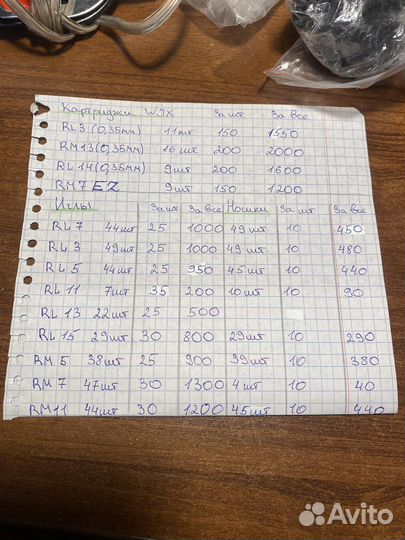 Картриджи WJX За шт За все
RL3 (0,35мм) 11шт 150 1550
RM13(0,35мм) 16 шт 200 2000
RL14(0,35мм) 9шт 200 1600
RM7 EZ 9шт 150 1200
Иглы За шт За все Носики За шт За все
RL7 44шт 25 1000 49шт 10 450
RL3 49шт 25 1000 49шт 10 480
RL5 44шт 25 950 45шт 10 440
RL11 7шт 35 200 10шт 10 90
RL13 22шт 25 500
RL15 29шт 30 800 29шт 10 290
RM5 38шт 25 900 39шт 10 380
RM7 47шт 30 1300 4шт 10 40
RM11 44шт 30 1200 45шт 10 440
Avito